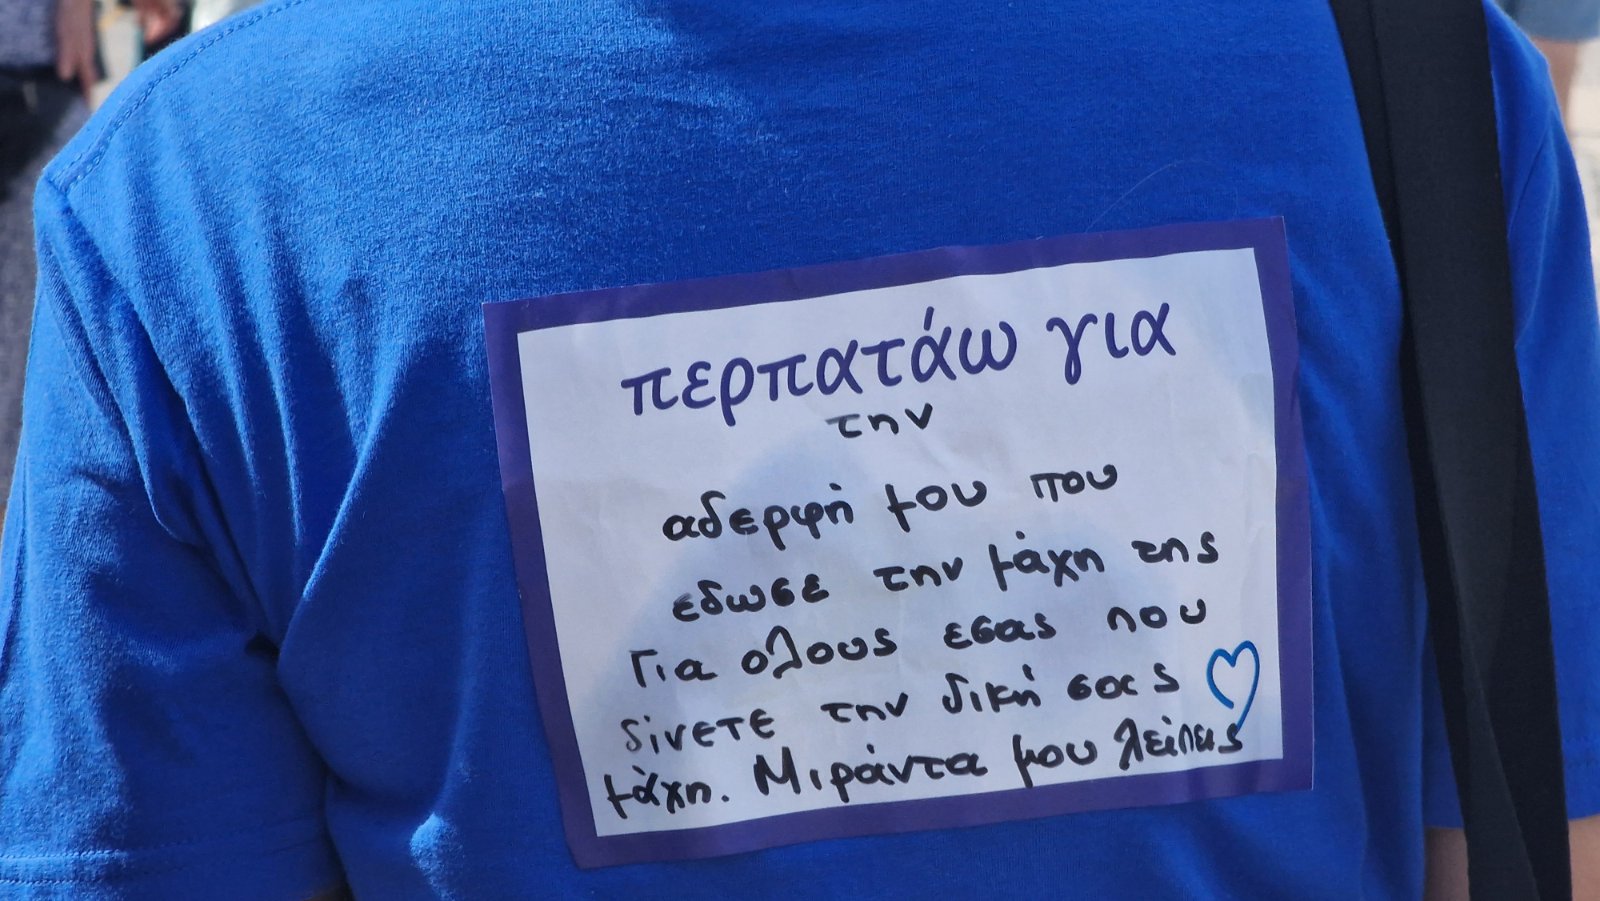 περπατάω για
την
αδερφή μου που
εδωσε την μάχη της
Για ολους εσας που
δίνετε την δική σας
μάχη. Μιράντα μου λείπεις